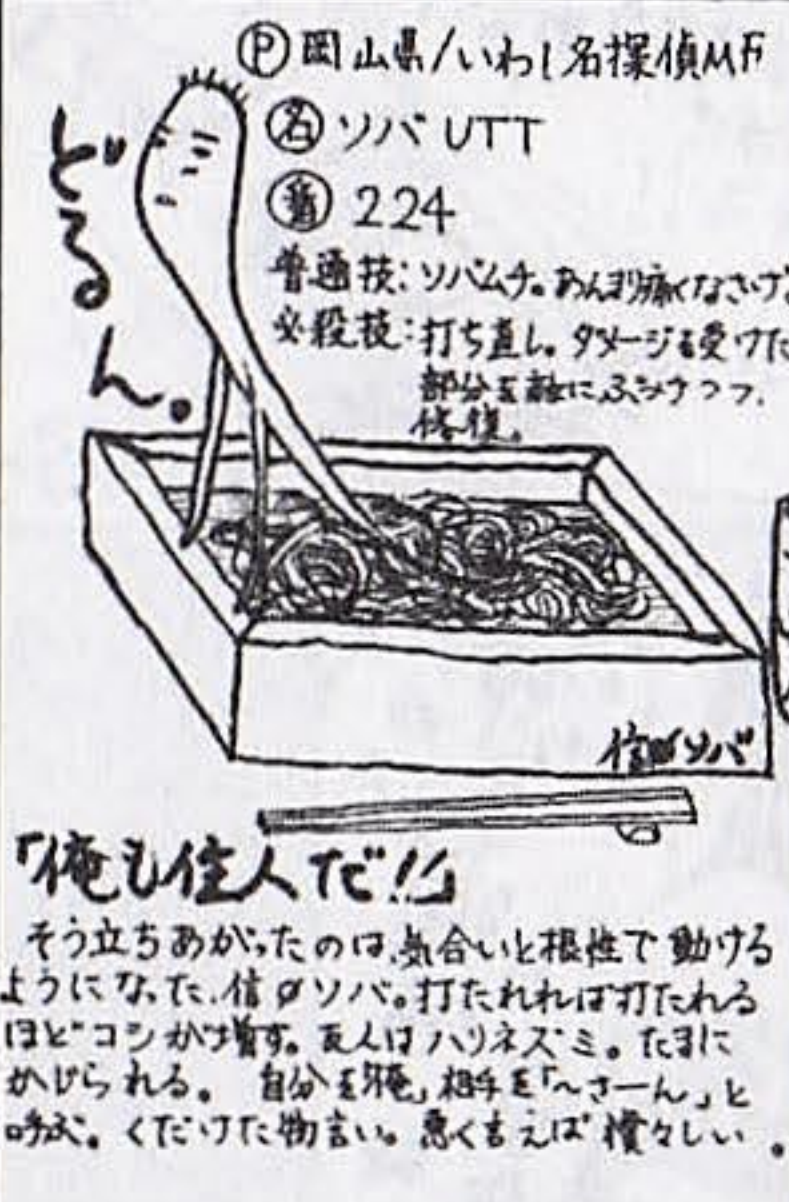 Ⓟ岡山県/いわし名探偵MF
㊔ソバUTT
224
どるん。
普通技:ソバムチ。あんまり痛くなさげ。
必殺技:打ち直し。ダメージを受けた
部分を敵にふみつつ、
修復。
信〆ソバ
「俺も住人だ!!」
そう立ちあがったのは、気合いと根性で動ける
ようになった、信〆ソバ。打たれれば打たれる
ほどコシが増す。友人はハリネズミ。たまに
かじられる。自分を「俺」相手を「〜さーん」と
呼ぶ。くだけた物言い。悪く言えば慣々しい。